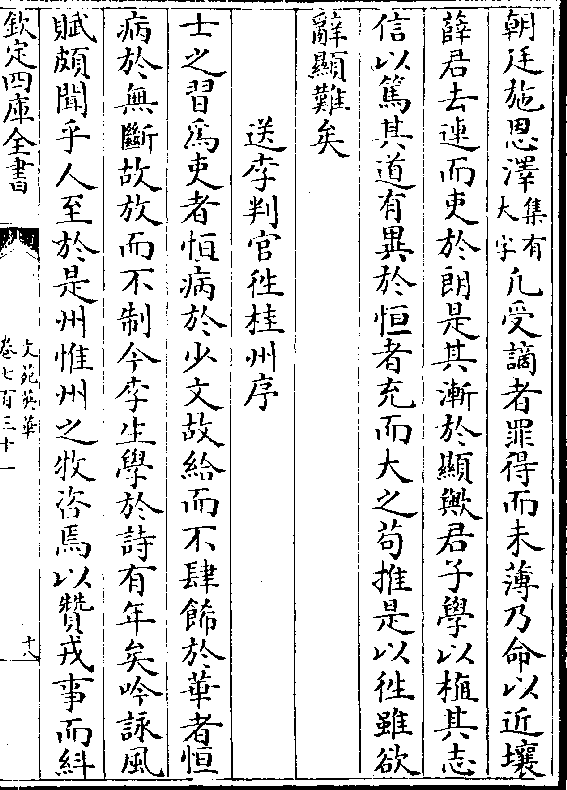 朝廷施恩澤集有大字凡受謫者罪得而未薄乃命以近壤
薛君去連而吏於朗是其漸於顯歟君子學以植其志
信以篤其道有異於恒者充而大之苟推是以徃雖欲
辭顯難矣
送李判官徃桂州序
士之習為吏者恒病於少文故給而不肆飾於華者恒
病於無斷故放而不制今李生學於詩有年矣吟詠風
賦頗聞乎人至於是州惟州之牧咨焉以贊戎事而糾
欽定四庫全書
文苑英華
卷七百三十一
十八